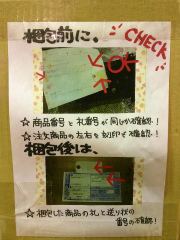 梱包前に、
CHECK
☆ 商品番号と札番号が同じか確認!
☆ 注文商品の左右を刻印も確認!
梱包後は、
☆ 梱包した商品の札と送り状の
番号の確認!